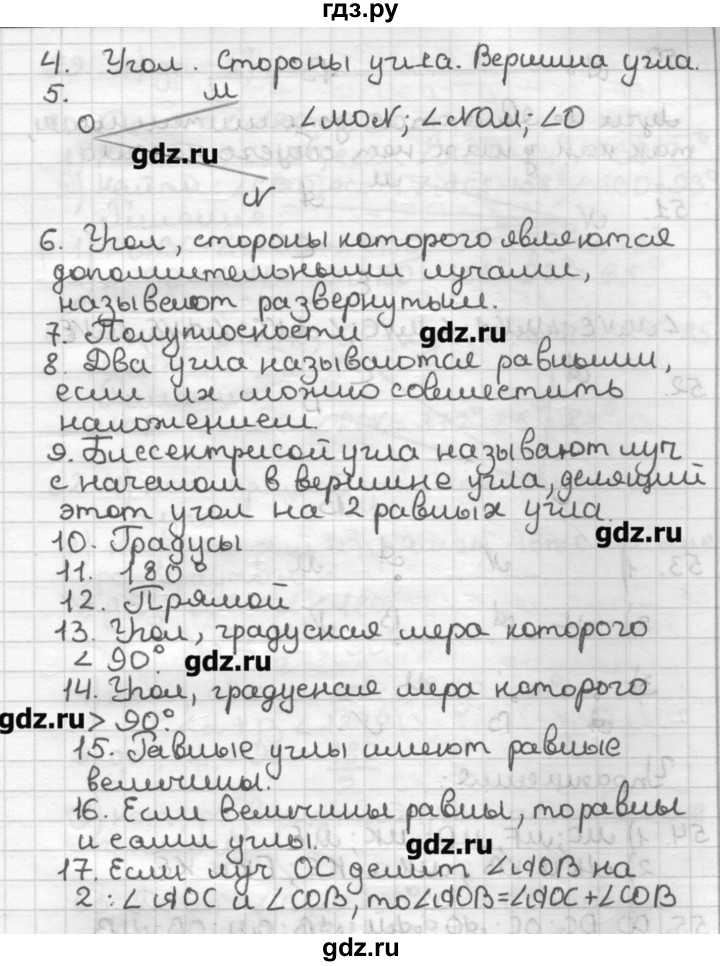 гдз.ру
4. Угол. Стороны угла. Вершина угла.
5. M
O ∠MON; ∠NOM; ∠O
gdz.ru
N
6. Угол, стороны которого являются
дополнительными лучами,
называют развернутым.
7. Полуплоскости gdz.ru
8. Два угла называются равными,
если их можно совместить
наложением.
9. Биссектрисой угла называют луч
с началом в вершине угла, делящий
этот угол на 2 равных угла.
gdz.ru
10. Градусы
11. 180°
12. Прямой
13. Угол, градусная мера которого
< 90°. gdz.ru
14. Угол, градусная мера которого
gdz.ru > 90°.
15. Равные углы имеют равные
величины.
16. Если величины равны, то равны
и сами углы. gdz.ru
17. Если луч OC делит ∠AOB на
2: ∠AOC и ∠COB, то ∠AOB=∠AOC+∠COB
gdz.ru